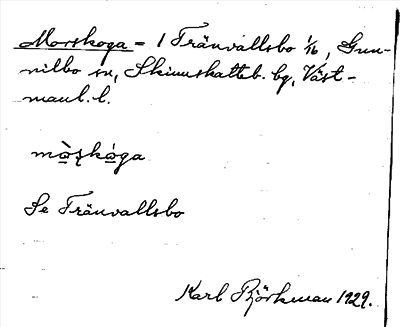 Morskoga = 1 Tränvallsbo 1/16, Gun-
nilbo sn, Skinnskatteb. bg, Väst-
manl. l.
mo̲ʂko̲ga
Se Tränvallsbo
Karl Björkman 1929.